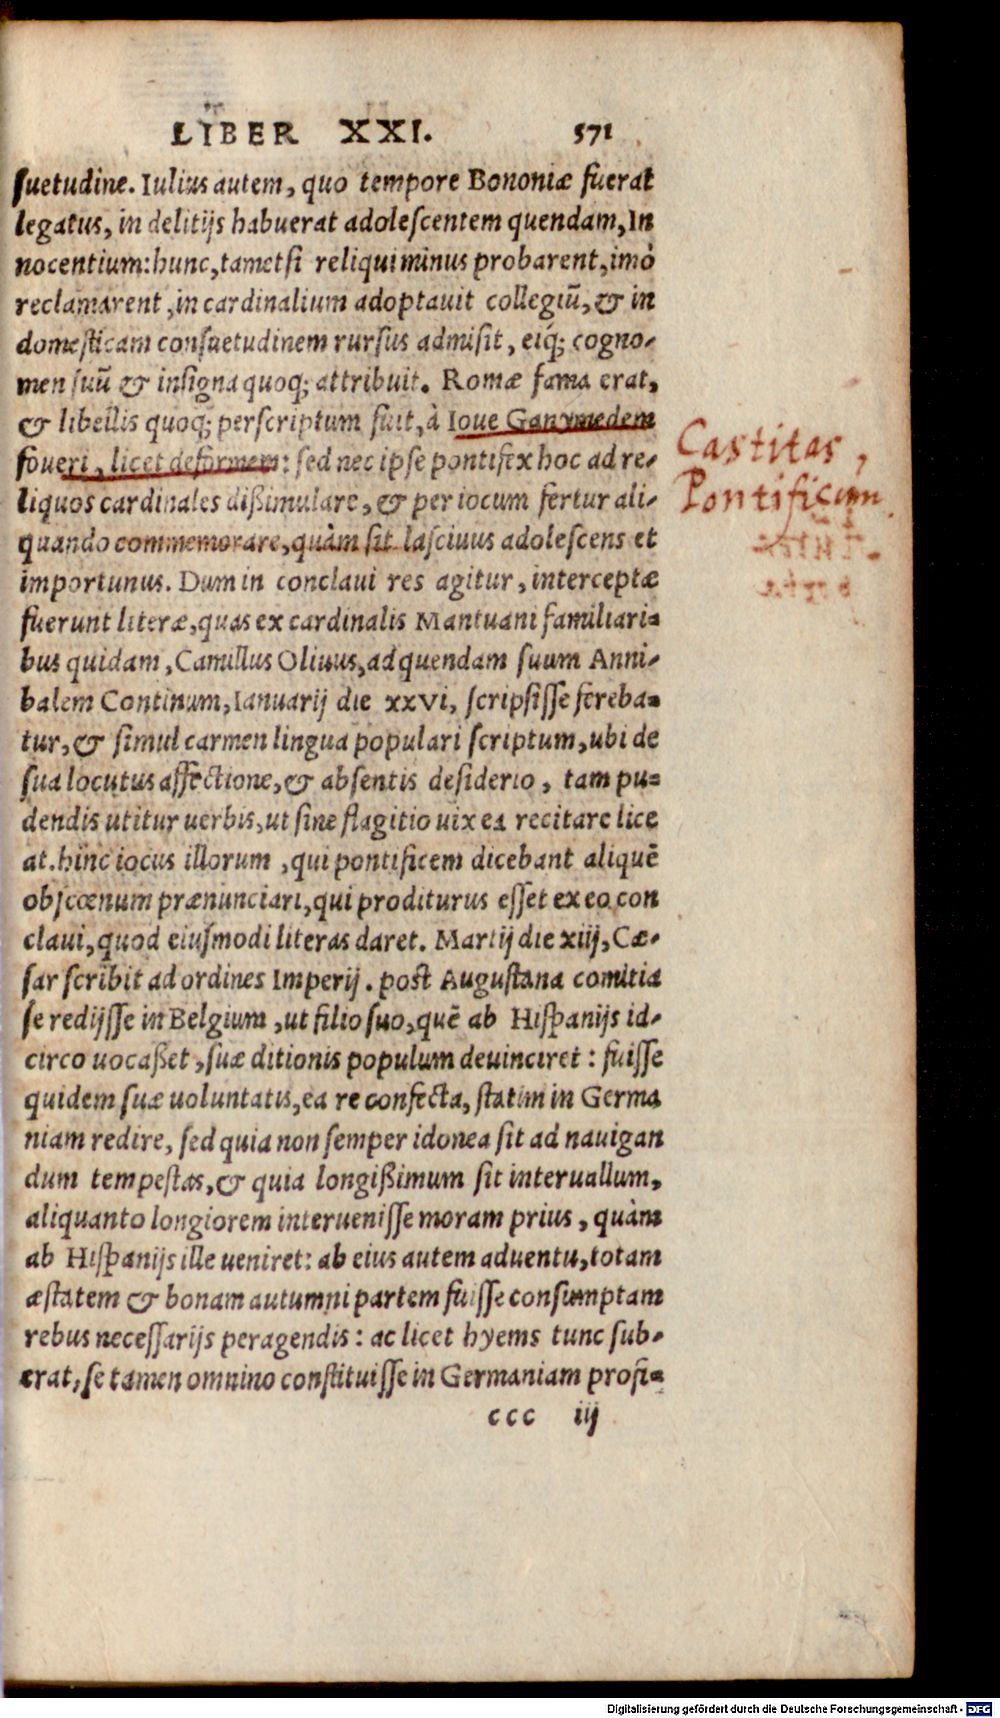 LIBER XXI. 571
ſuetudine. Iulius autem, quo tempore Bononiæ fuerat
legatus, in delitijs habuerat adoleſcentem quendam, In
nocentium: hunc, tametſi reliqui minus probarent, imò
reclamarent, in cardinalium adoptauit collegiũ, & in
domeſticam conſuetudinem rurſus admiſit, eiq́; cogno-
men ſuũ & inſigna quoq; attribuit. Romæ fama erat,
& libellis quoq; perſcriptum fuit, à Ioue Ganymedem
foueri, licet deformem: ſed nec ipſe pontifex hoc ad re-
liquos cardinales dißimulare, & per iocum fertur ali-
quando commemorare, quàm ſit laſciuus adoleſcens et
importunus. Dum in conclaui res agitur, interceptæ
fuerunt literæ, quas ex cardinalis Mantuani familiari-
bus quidam, Camillus Oliuus, ad quendam ſuum Anni-
balem Continum, Ianuarij die xxvi, ſcripſiſſe fereba-
tur, & ſimul carmen lingua populari ſcriptum, ubi de
ſua locutus affectione, & abſentis deſiderio, tam pu-
dendis utitur uerbis, ut ſine flagitio uix ea recitare lice
at. hinc iocus illorum, qui pontificem dicebant aliquẽ
obſcœnum prænunciari, qui proditurus eſſet ex eo con
claui, quod eiuſmodi literas daret. Martij die xiij, Cæ-
ſar ſcribit ad ordines Imperij. poſt Auguſtana comitia
ſe redijſſe in Belgium, ut filio ſuo, quẽ ab Hiſpanijs id-
circo uocaßet, ſuæ ditionis populum deuinciret: fuiſſe
quidem ſuæ uoluntatis, ea re confecta, ſtatim in Germa
niam redire, ſed quia non ſemper idonea ſit ad nauigan
dum tempeſtas, & quia longißimum ſit interuallum,
aliquanto longiorem interueniſſe moram prius, quàm
ab Hiſpanijs ille ueniret: ab eius autem aduentu, totam
æſtatem & bonam autumni partem fuiſſe conſumptam
rebus neceſſarijs peragendis: ac licet hyems tunc ſub-
erat, ſe tamen omnino conſtituiſſe in Germaniam profi-
ccc iij
Castitas,
Pontificum
Digitalisierung gefördert durch die Deutsche Forschungsgemeinschaft - DFG